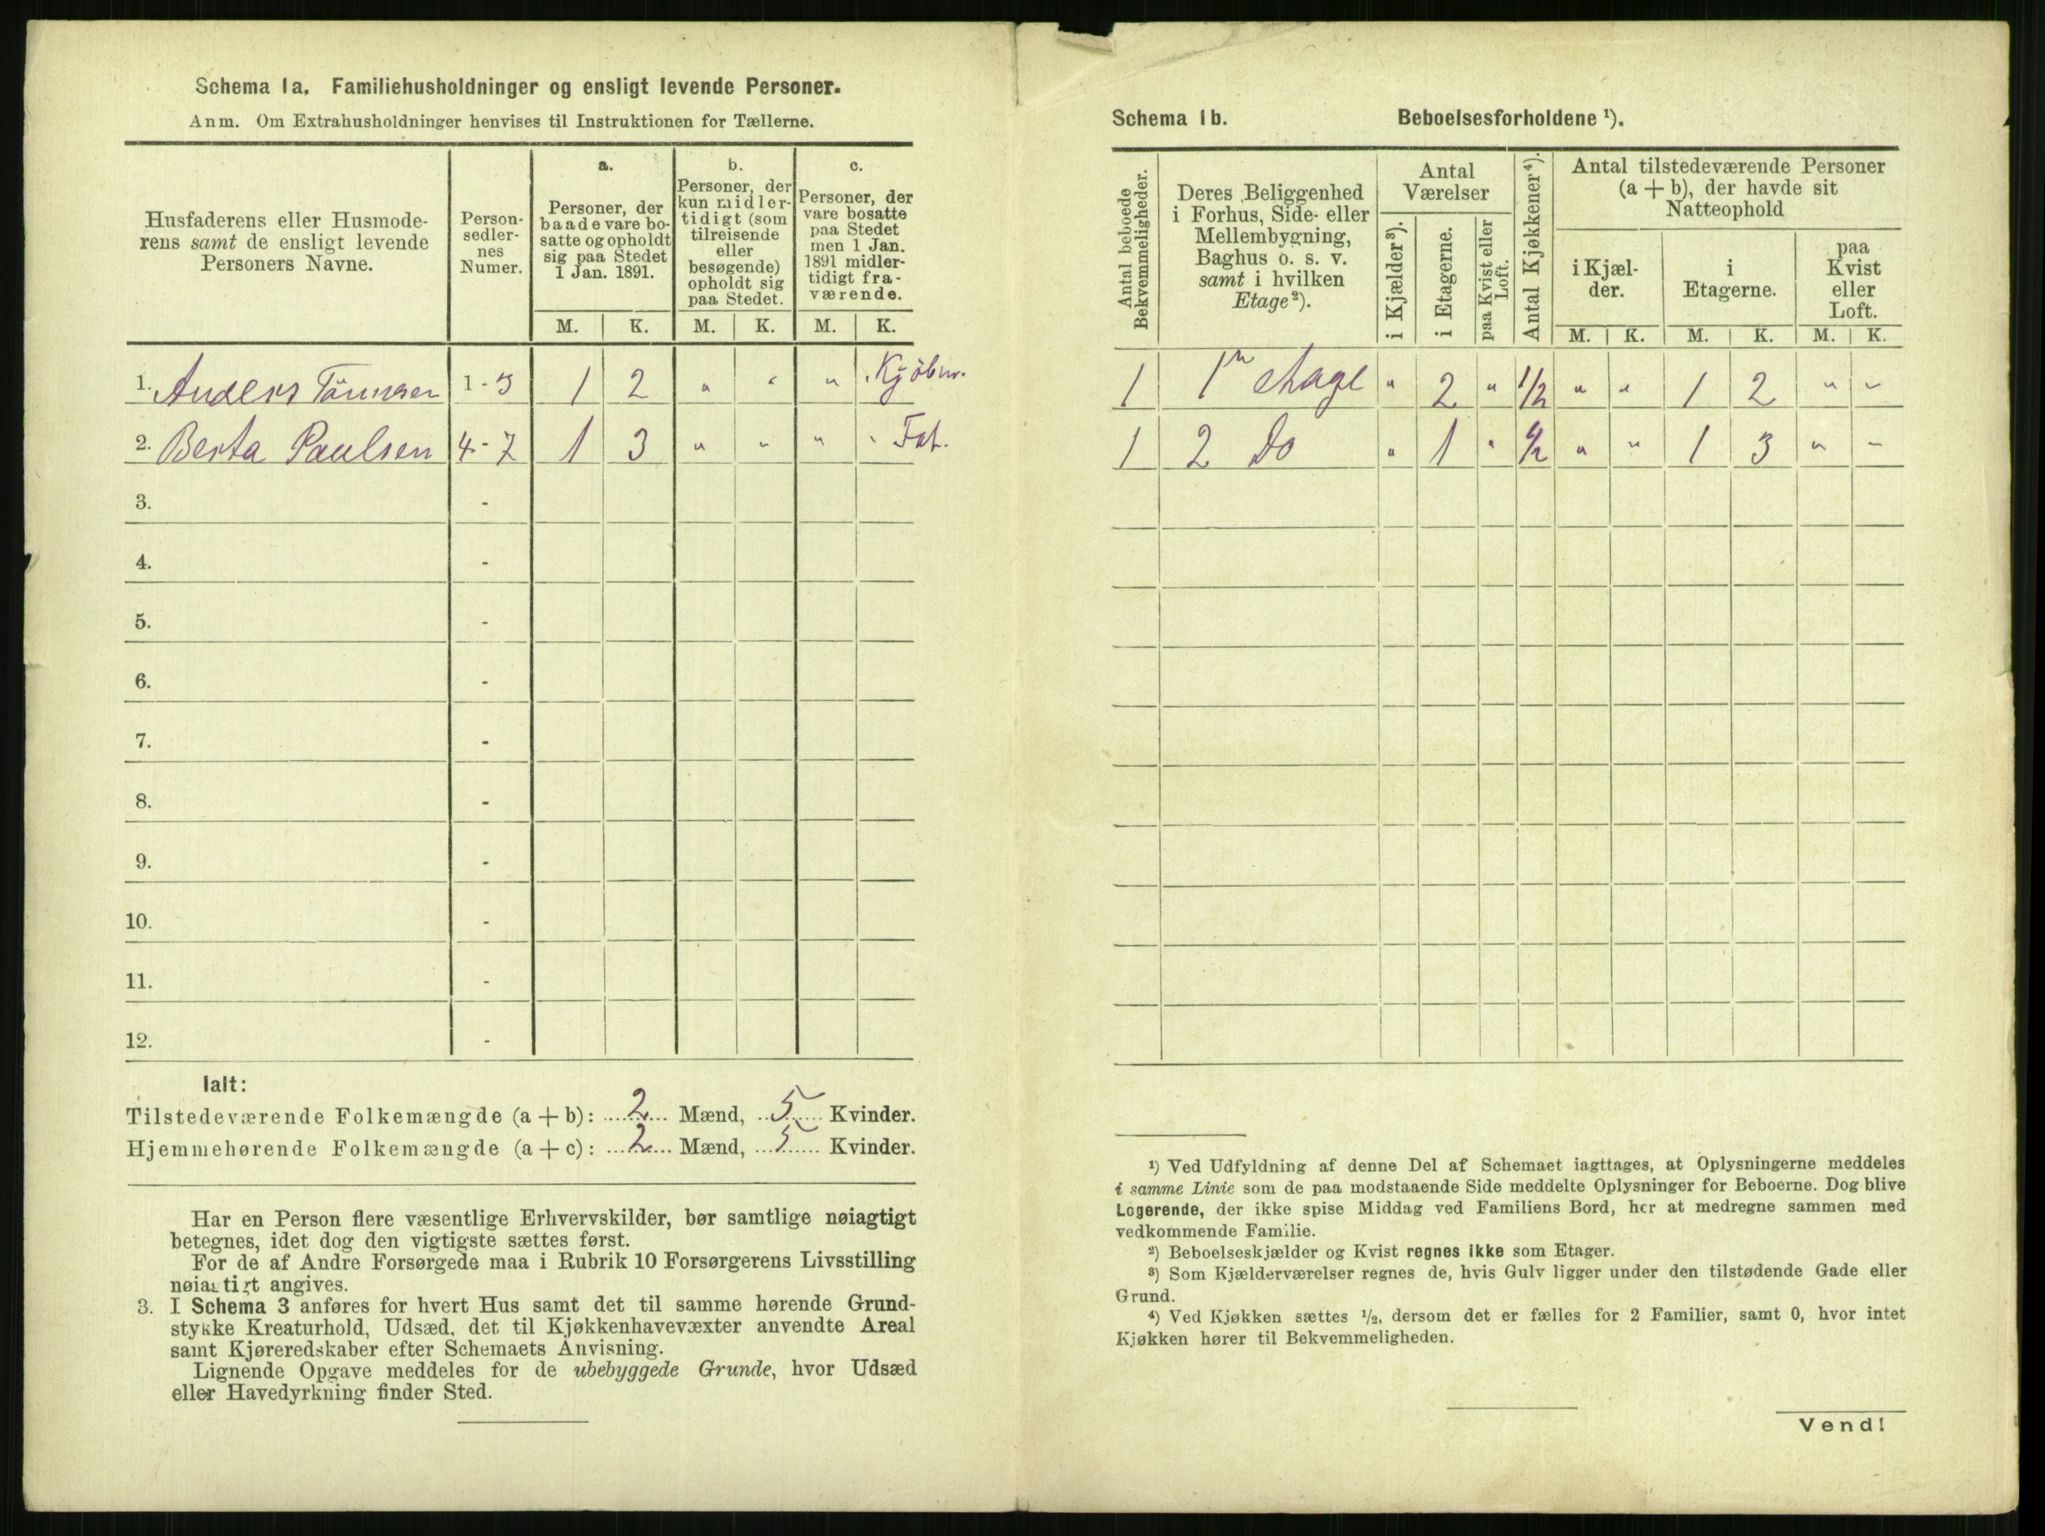 Schema 1a. Familiehusholdninger og ensligt levende Personer.
Anm. Om Extrahusholdninger henvises til Instruktionen for Tællerne.
Husfaderens eller Husmode-
rens samt de ensligt levende
Personers Navne.
Person-
sedler-
nes
Numer.
a.
Personer, der
baade vare bo-
satte og opholdt
sig paa Stedet
1 Jan. 1891.
b.
Personer, der
kun midler-
tidigt (som
tilreisende
eller
besøgende)
opholdt sig
paa Stedet.
c.
Personer, der
vare bosatte
paa Stedet
men 1 Jan.
1891 midler-
tidigt fra-
værende.
M. K. M. K. M. K.
1. Anders Tönnesen 1 - 3 1 2 " " " Kjøbm.
2. Berta Paulsen 4 - 7 1 3 " " " " Fat.
3. -
4. -
5. -
6. -
7. -
8. -
9. -
10. -
11. -
12. -
Ialt:
Tilstedeværende Folkemængde (a + b): 2 Mænd, 5 Kvinder.
Hjemmehørende Folkemængde (a + c): 2 Mænd, 5 Kvinder.
Har en Person flere væsentlige Erhvervskilder, bør samtlige nøiagtigt
betegnes, idet dog den vigtigste sættes først.
For de af Andre Forsørgede maa i Rubrik 10 Forsørgerens Livsstilling
nøiagtigt angives.
3. I Schema 3 anføres for hvert Hus samt det til samme hørende Grund-
stykke Kreaturhold, Udsæd, det til Kjøkkenhavevæxter anvendte Areal
samt Kjøreredskaber efter Schemaets Anvisning.
Lignende Opgave meddeles for de ubebyggede Grunde, hvor Udsæd
eller Havedyrkning finder Sted.
Schema 1b. Beboelsesforholdene ¹).
Antal beboede
Bekvemmeligheder.
Deres Beliggenhed
i Forhus, Side- eller
Mellembygning,
Baghus o. s. v.
samt i hvilken
Etage ²).
Antal
Værelser
i Kjælder ³).
i Etagerne.
paa Kvist eller
Loft.
Antal Kjøkkener ⁴).
Antal tilstedeværende Personer
(a + b), der havde sit
Natteophold
i Kjæl-
der.
i
Etagerne.
paa
Kvist
eller
Loft.
M. K. M. K. M. K.
1 1ⁿ etage " 2 " 1/2 " " 1 2 " "
1 2 Do " 1 " 1/2 " " 1 3 " "
¹) Ved Udfyldning af denne Del af Schemaet iagttages, at Oplysningerne meddeles
i samme Linie som de paa modstaaende Side meddelte Oplysninger for Beboerne. Dog blive
Logerende, der ikke spise Middag ved Familiens Bord, her at medregne sammen med
vedkommende Familie.
²) Beboelseskjælder og Kvist regnes ikke som Etager.
³) Som Kjælderværelser regnes de, hvis Gulv ligger under den tilstødende Gade eller
Grund.
⁴) Ved Kjøkken sættes ½, dersom det er fælles for 2 Familier, samt 0, hvor intet
Kjøkken hører til Bekvemmeligheden.
Vend!